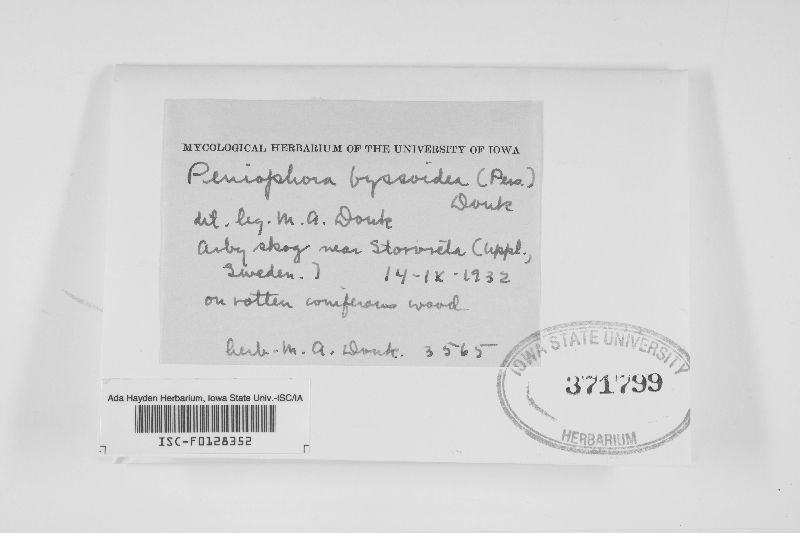 MYCOLOGICAL HERBARIUM OF THE UNIVERSITY OF IOWA
Peniophora byssoidea (Pers.)
Donk
det. leg. M. A. Donk
Årby skog near Storvreta (Uppl.,
Sweden.) 14-IX-1932
on rotten coniferous wood
herb. M. A. Donk. 3565
IOWA STATE UNIVERSITY
371799
HERBARIUM
Ada Hayden Herbarium, Iowa State Univ.-ISC/IA
ISC-F0128352